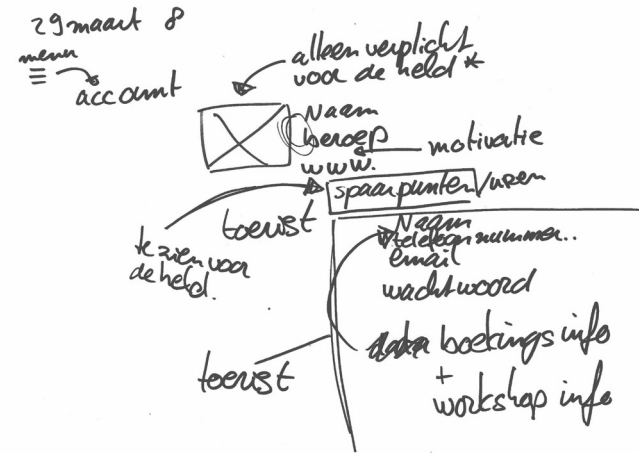 29 maart 8
menu
account
alleen verplicht
voor de held *
Naam
beroep
www.
motivatie
spaarpunten/uren
toerist
te zien voor
de held.
Naam
telefoonnummer..
email
wachtwoord
boekings info
+
workshop info
toerist